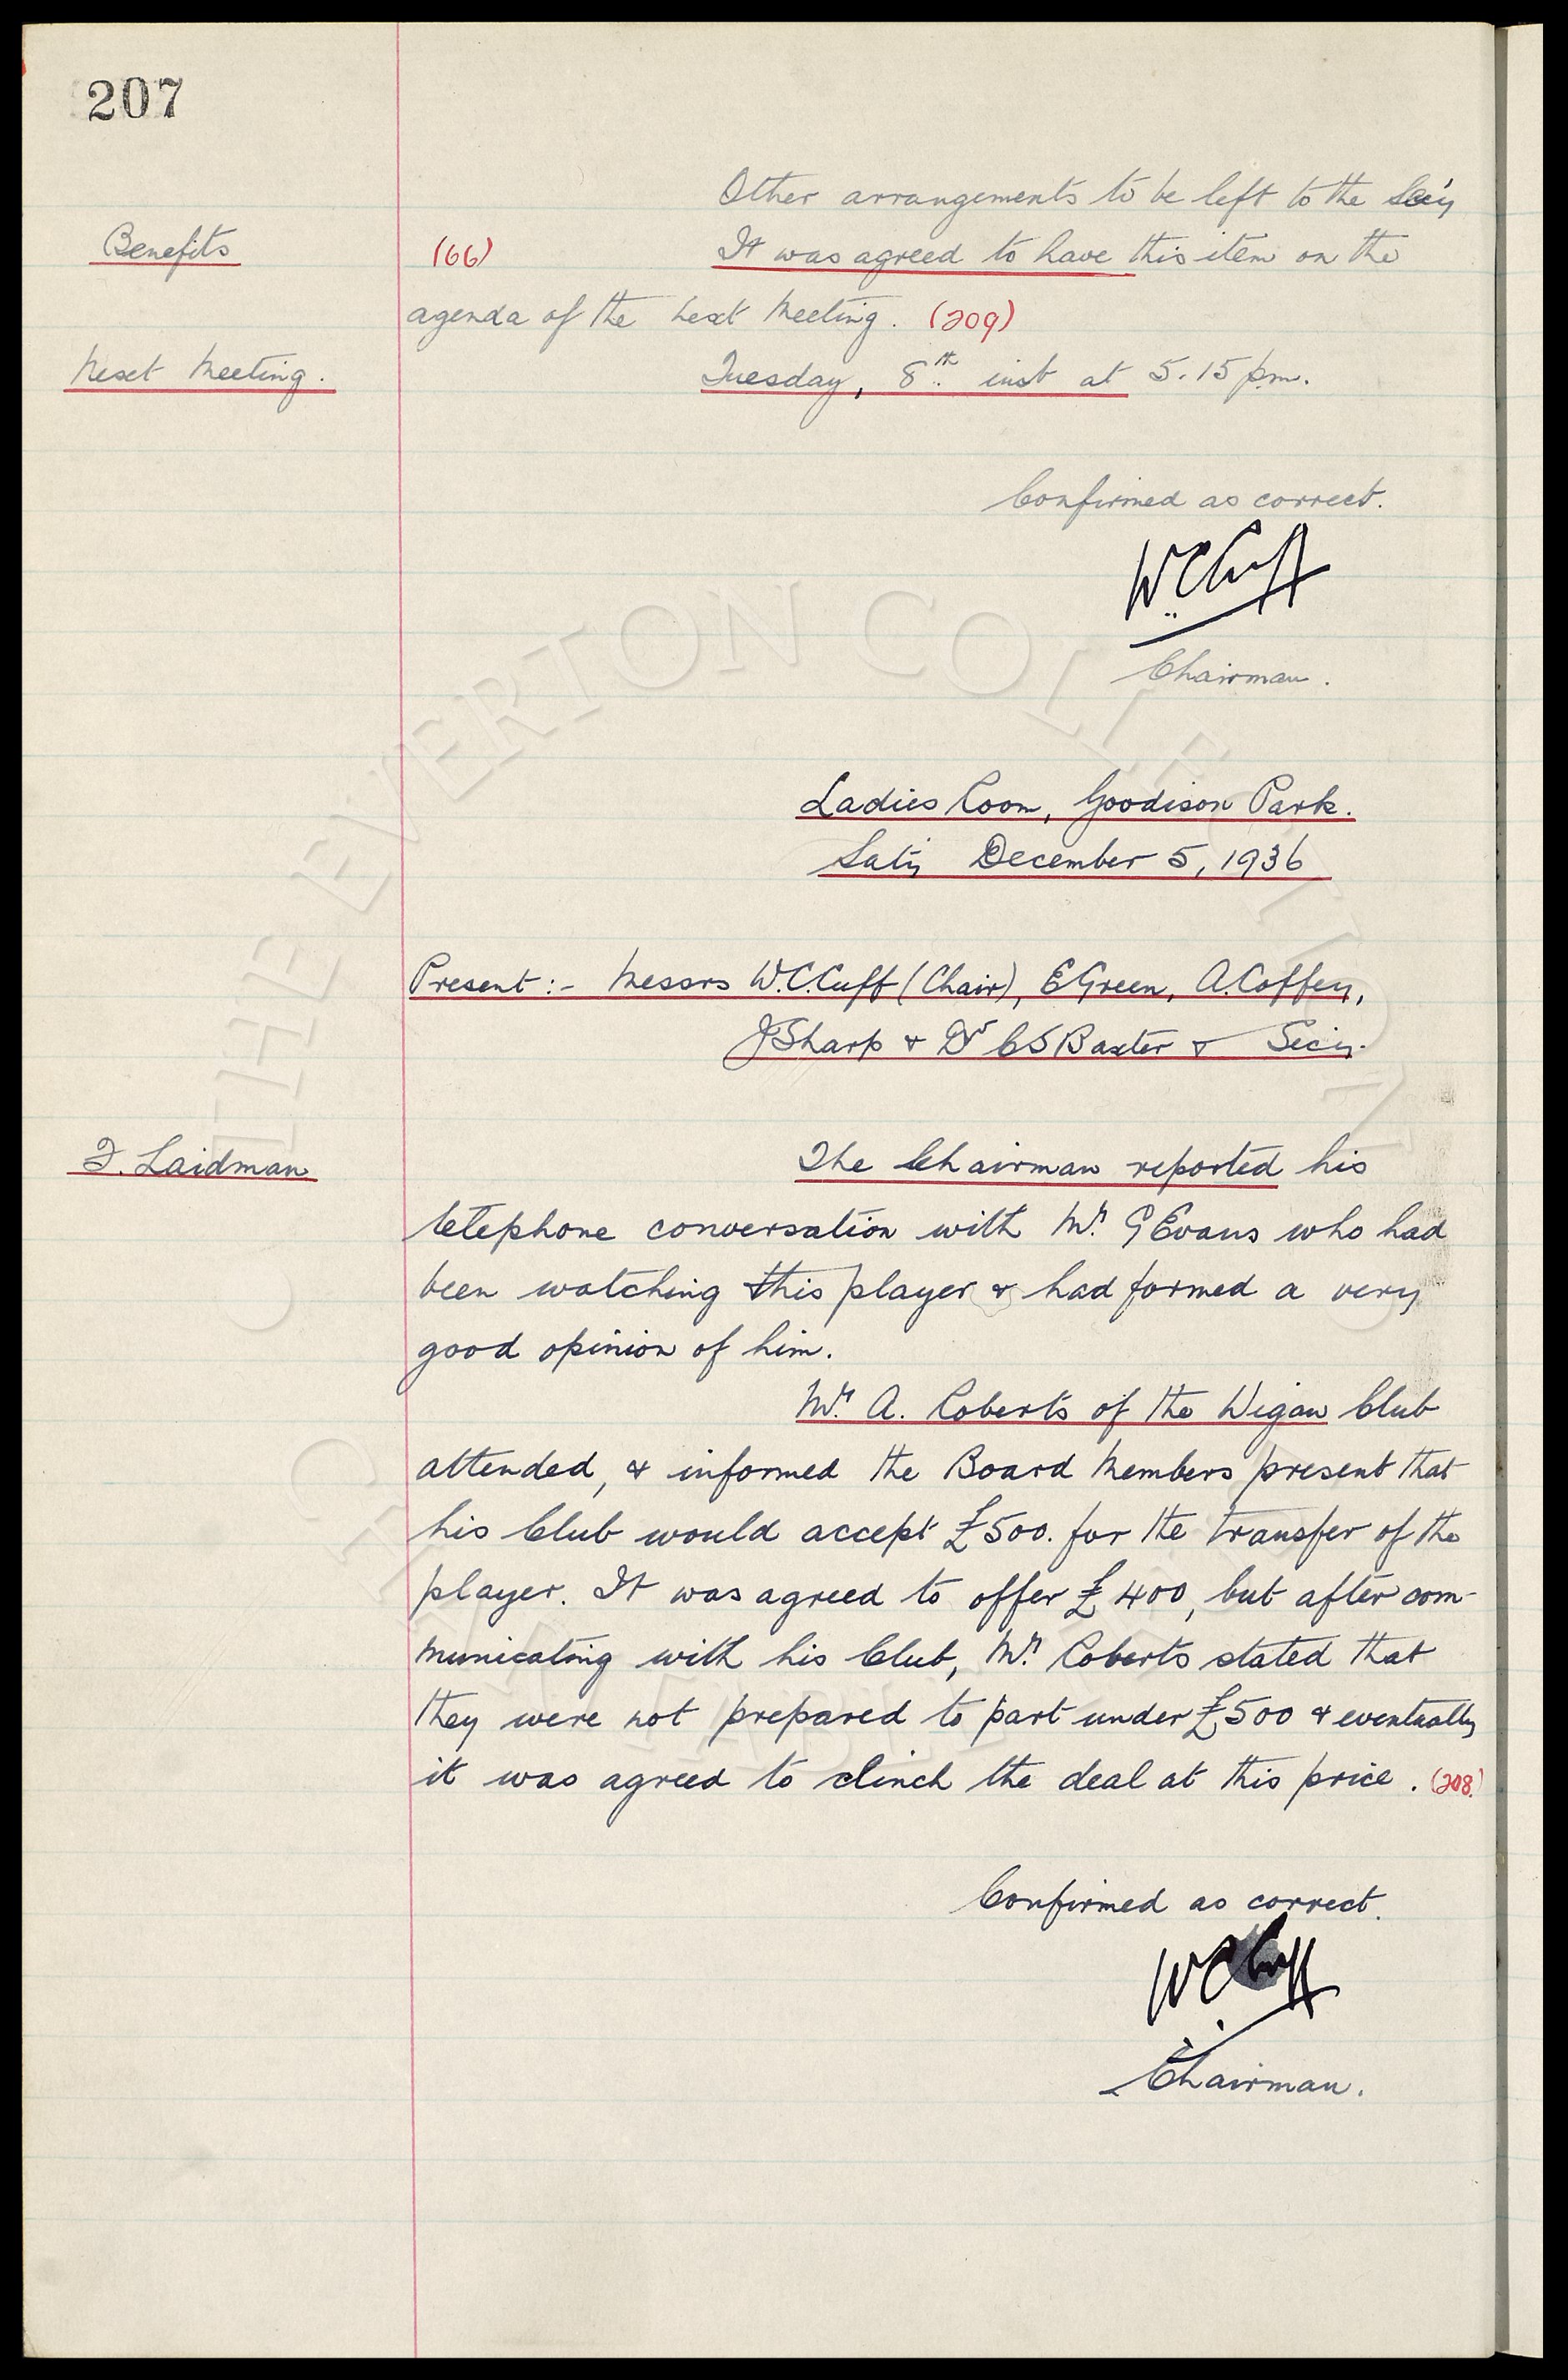 207
Other arrangements to be left to the Sec'y
Benefits (66) It was agreed to have this item on the
agenda of the next meeting. (209)
Next Meeting. Tuesday, 8th. inst at 5.15 p.m.
Confirmed as correct.
W.C.Cuff
Chairman.
Ladies Room, Goodison Park.
Sat'y December 5, 1936
Present:- Messrs W.C.Cuff (Chair), E Green, A. Coffey,
J Sharp & Dr C S Baxter & Sec'y.
F. Laidman The Chairman reported his
telephone conversation with Mr. G Evans who had
been watching this player & had formed a very
good opinion of him.
Mr. A. Roberts of the Wigan Club
attended, & informed the Board Members present that
his Club would accept £500. for the transfer of the
player. It was agreed to offer £400, but after com-
municating with his Club, Mr. Roberts stated that
they were not prepared to part under £500 & eventually
it was agreed to clinch the deal at this price. (208.)
Confirmed as correct.
W C Cuff
Chairman.
THE EVERTON COLLECTION